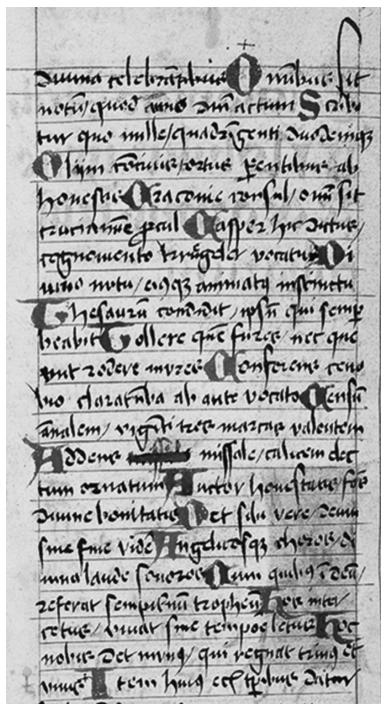 divina celebrantibus Omnibus sit
notum, quod annus dum actum Scribi
tur quo mille, quadringenti duodeinque
Olim conciuis, ortus parentibus ab
honestis Cracouie consul, omni sit
procul Casper hic dictus,
cognomento vocatus Di
uino notu, eiusque animatus instinctu
Thesaurum condidit, ipsum qui semper
beabit Tollere quem fures, nec que
unt rodere mures Conferens ceno
bio claratumba ab ante vocato Censum
annalem, viginti tres marcas valentem
Addens missale, calicem dec
tum ornatum Auctor honestatis, fons
diuine bonitatis Det sibi vere, deum
sine fine videre Angelicosque choros, di
uina laude sonoros Cum quibus in deum,
referat sempiternum tropheum Hos inter
cetus, viuat sine tempore letus Hoc
nobis det munus, qui regnat trinus et
unus Item huius ecclesie patribus datur